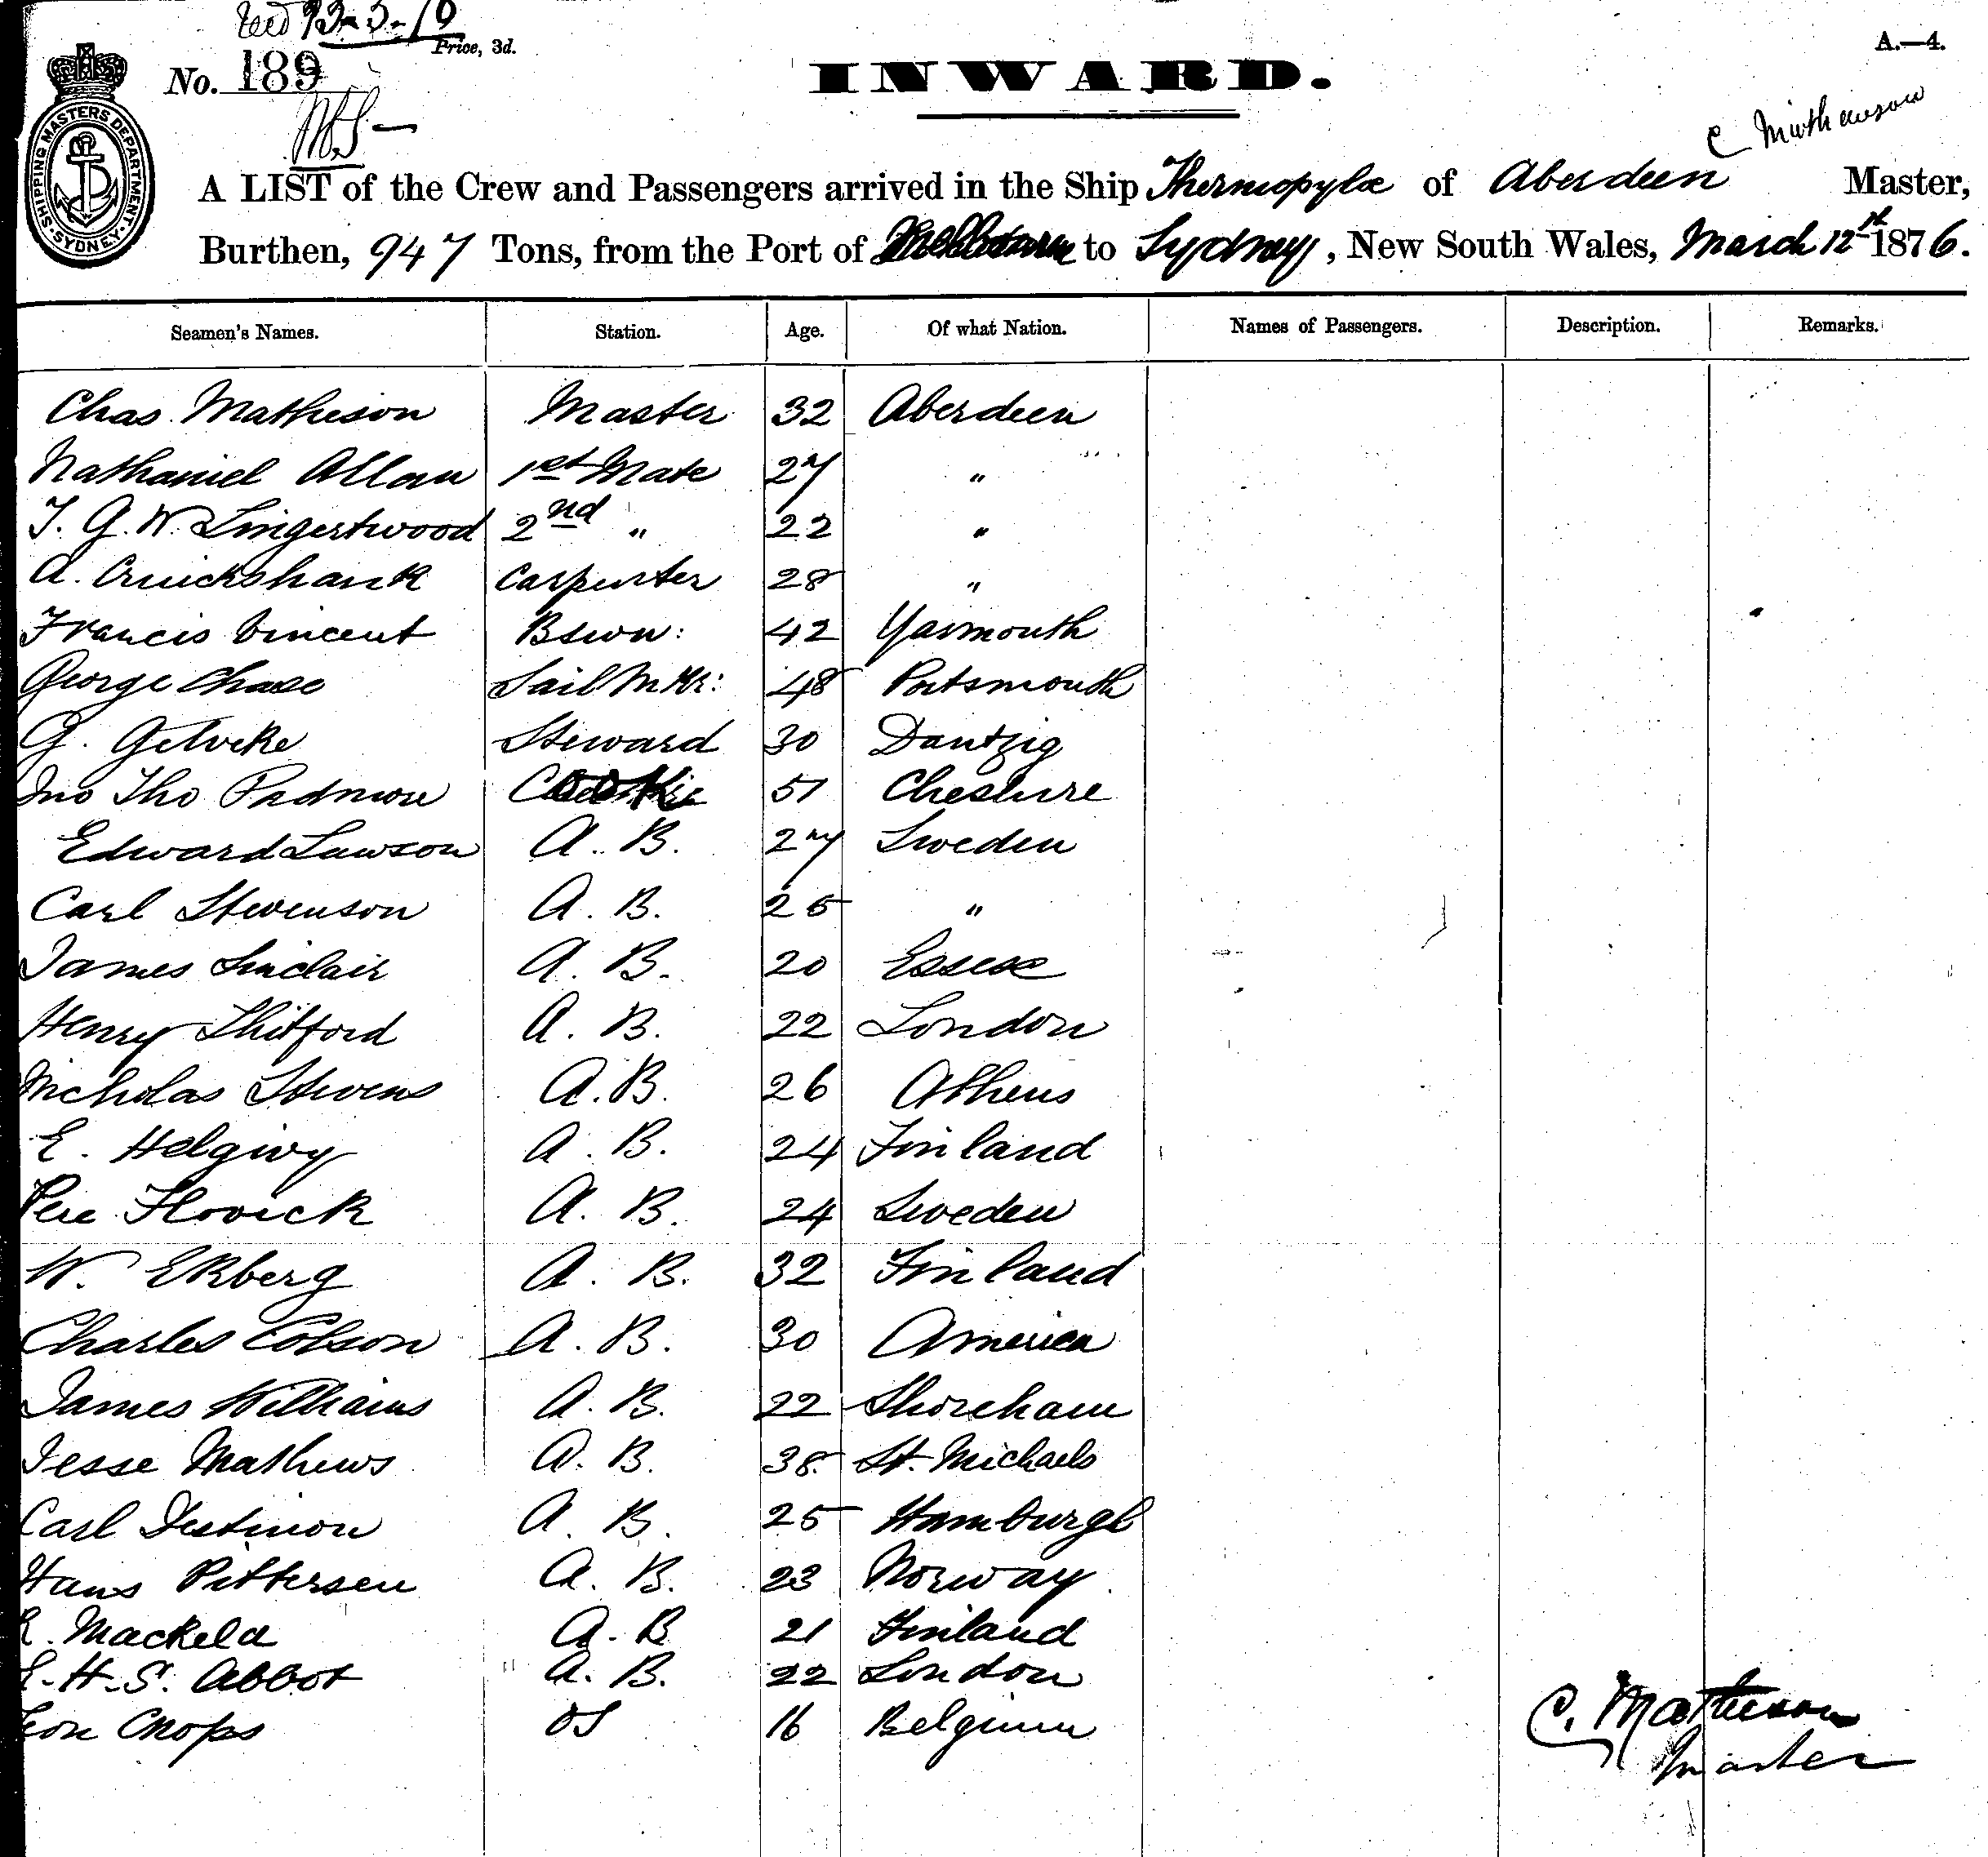 No. 189
Price, 3d.
A.—4.
INWARD.
SHIPPING MASTERS DEPARTMENT SYDNEY
A LIST of the Crew and Passengers arrived in the Ship Thermopylæ of Aberdeen Master,
Burthen, 947 Tons, from the Port of to Sydney, New South Wales, March 12th 1876.
Seamen's Names. Station. Age. Of what Nation. Names of Passengers. Description. Remarks.
Chas. Matheson Master 32 Aberdeen
Nathaniel Allan 1st Mate 27 "
J. G. W. Lingertwood 2nd " 22 "
A. Cruickshank Carpenter 28 "
Francis Vincent Bswn: 42 Yarmouth
George Chase Sail Mkr: 48 Portsmouth
G. Steward 30 Dantzig
Jno Tho Padmore 51 Cheshire
Edward Lawson A. B. 27 Sweden
Carl Stevenson A. B. 25 "
James Sinclair A. B. 20 Essex
Henry A. B. 22 London
Nicholas Stevens A. B. 26 Athens
E. A. B. 24 Finland
A. B. 24 Sweden
W. Ekberg A. B. 32 Finland
Charles Cobson A. B. 30 America
James Williams A. B. 22 Shoreham
Jesse Mathews A. B. 38 St. Michaels
Carl A. B. 25
Hans Pettersen A. B. 23 Norway
Mackela A. B 21 Finland
H. S. Abbot A. B. 22 London
Leon Chops OS 16 Belgium
C. Matheson
Master